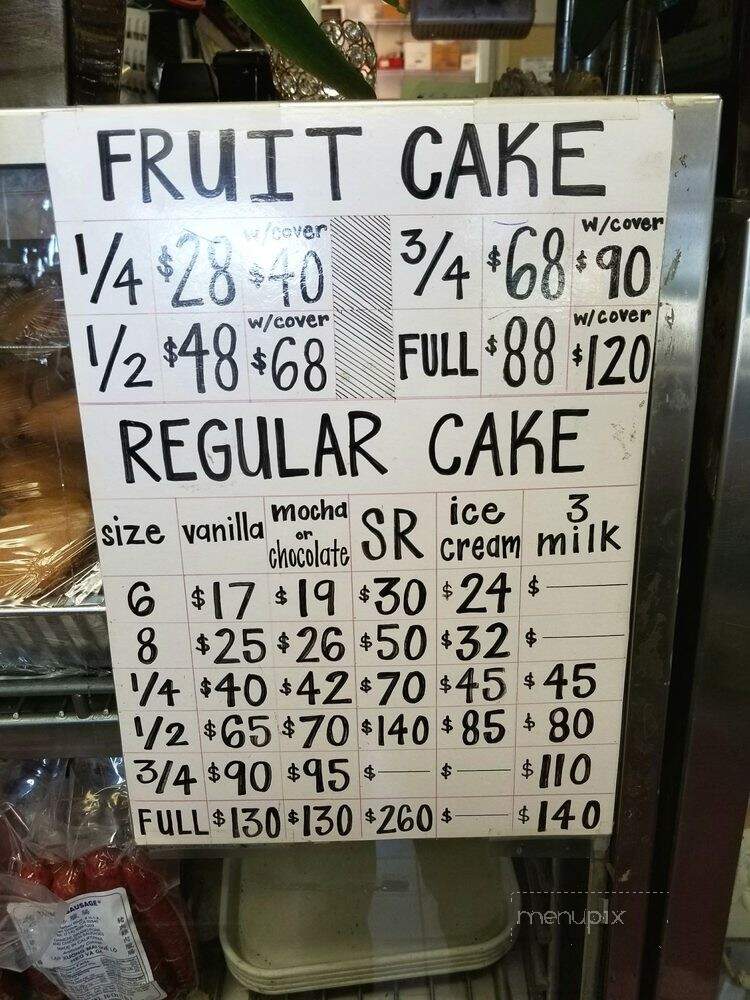 FRUIT CAKE
1/4 $28 w/cover $40 3/4 $68 w/cover $90
1/2 $48 w/cover $68 FULL $88 w/cover $120
REGULAR CAKE
size vanilla mocha or chocolate SR ice cream 3 milk
6 $17 $19 $30 $24 $—
8 $25 $26 $50 $32 $—
1/4 $40 $42 $70 $45 $45
1/2 $65 $70 $140 $85 $80
3/4 $90 $95 $— $— $110
FULL $130 $130 $260 $— $140
SAUSAGE
menupix